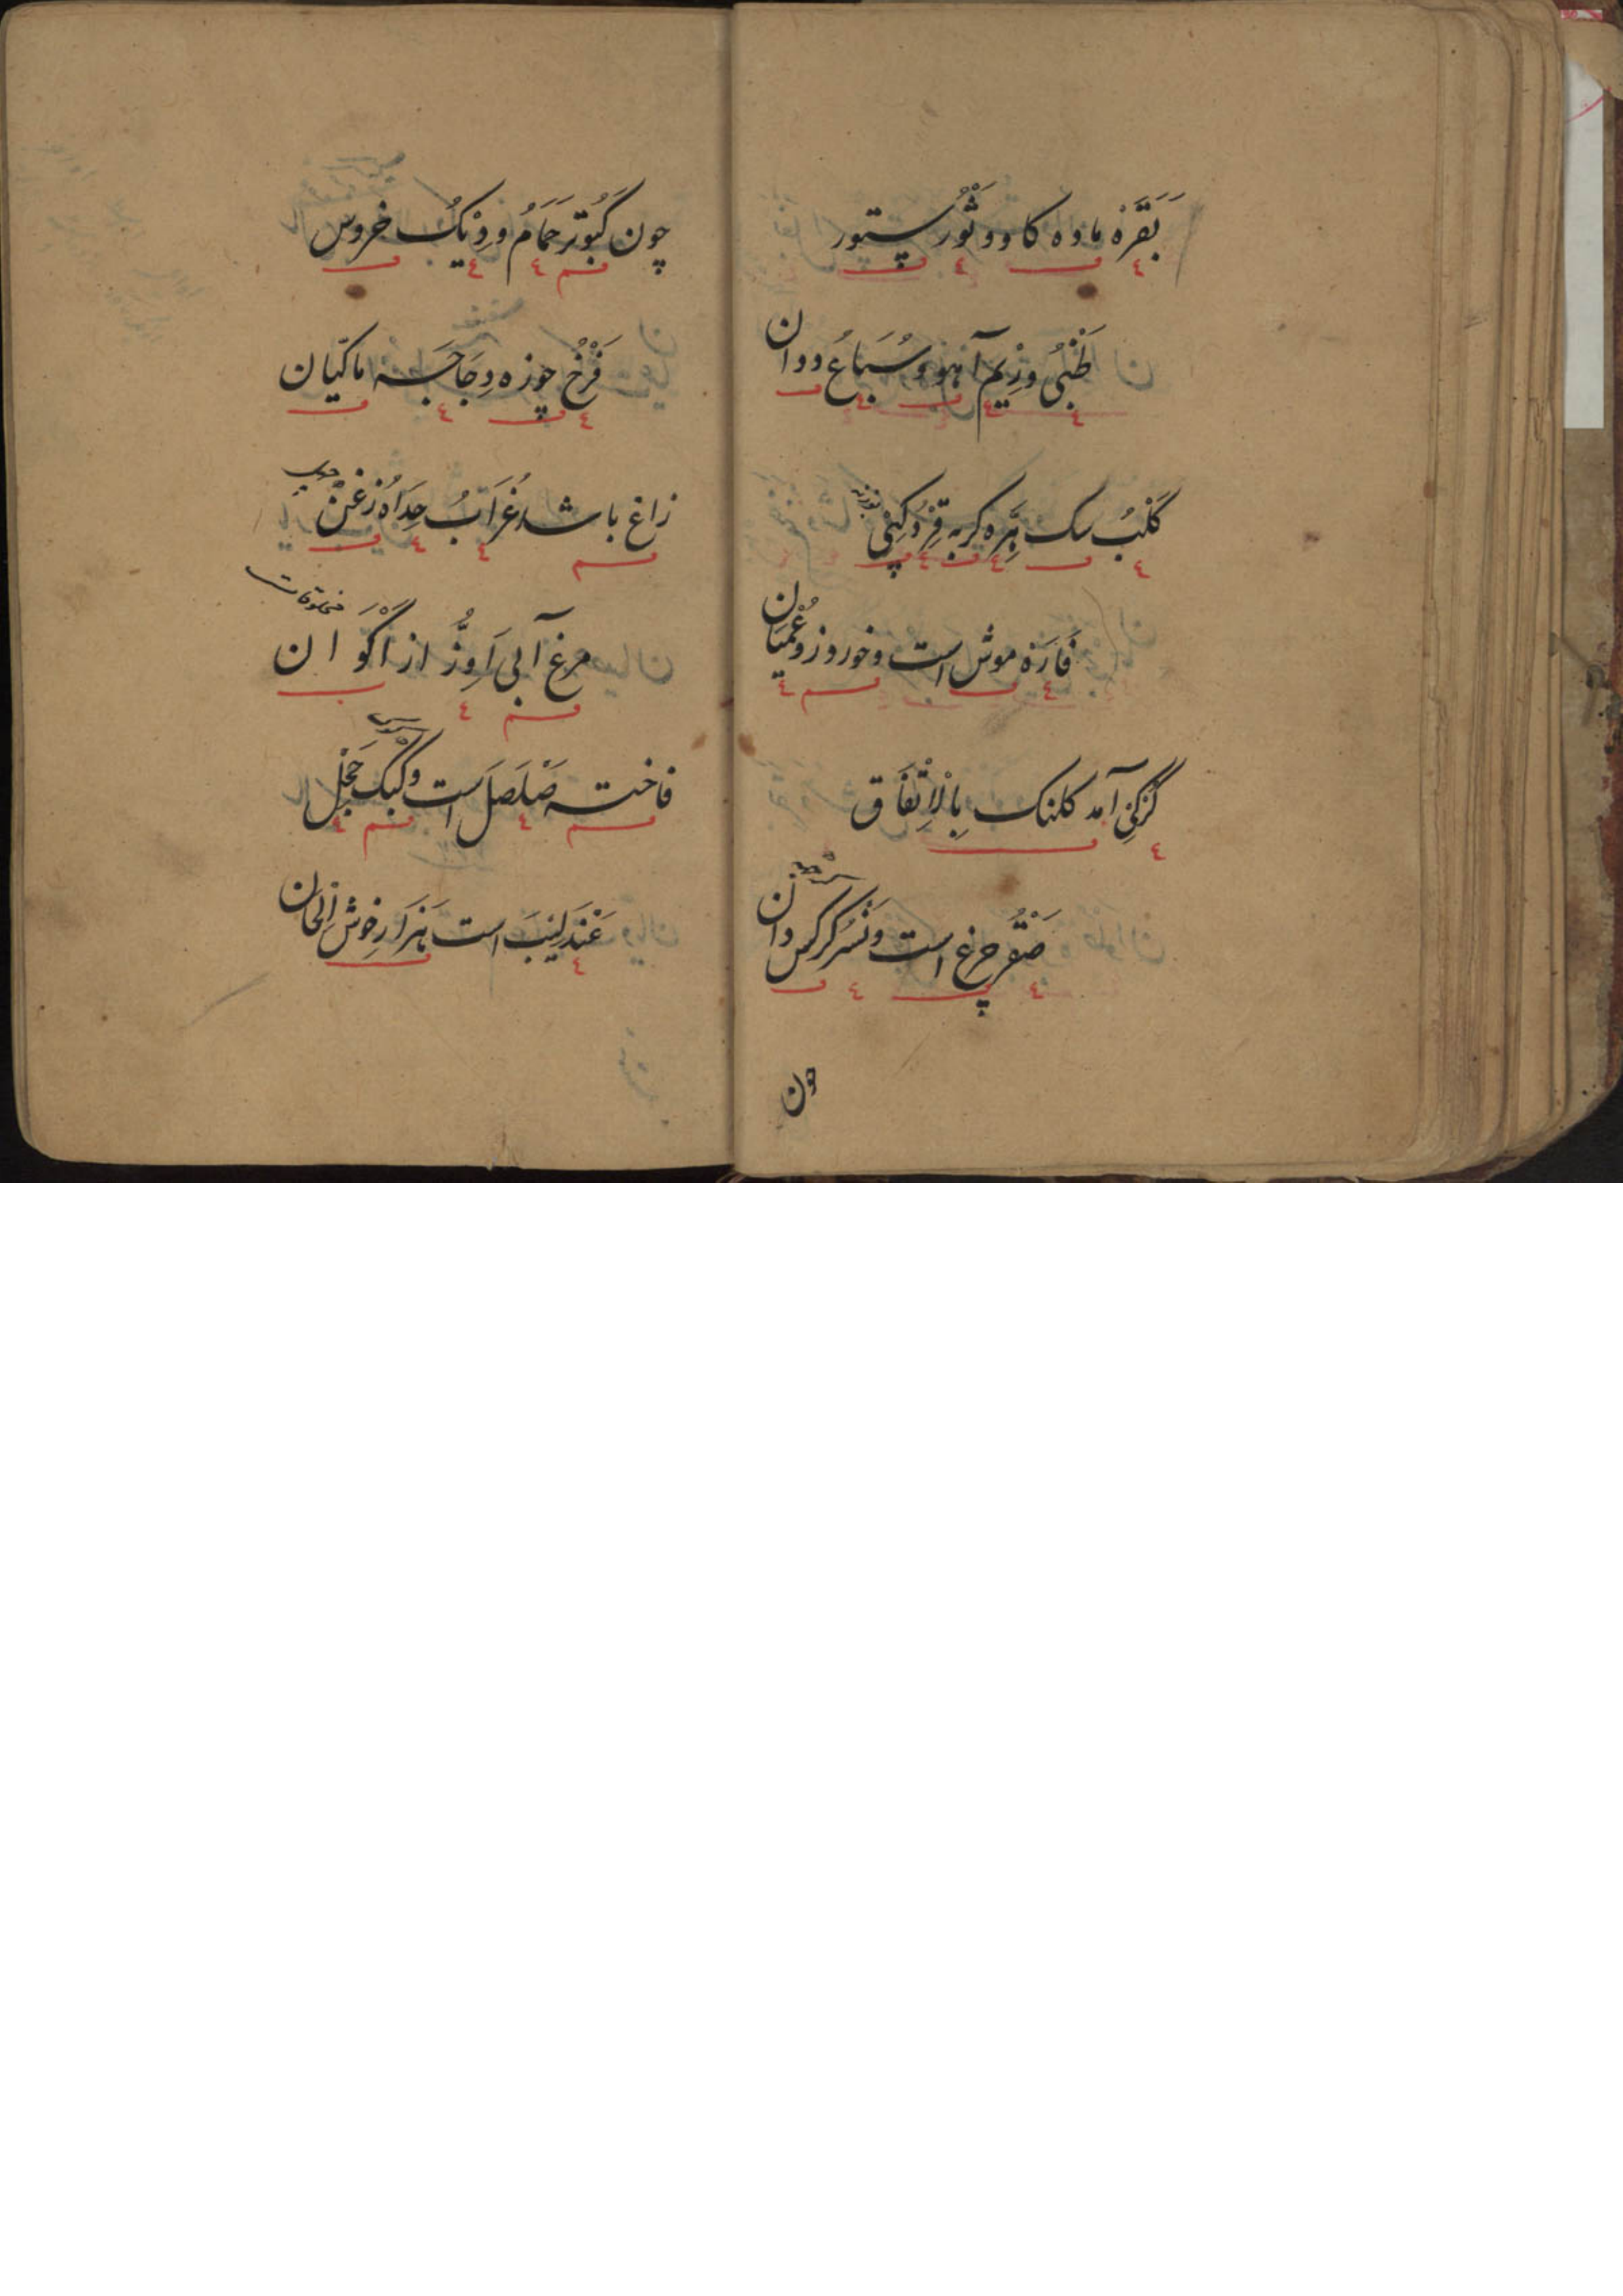 بَقَرَه ماده کاو و ثَوْرُ ستور
ظَبْیُ و رِیم آهو و سُبَاعُ ددان
کَلْبُ سک هِرَّه کربه قِرْدُ کپی
فَارَه موش است و خور روز و عُمیان
کُرْکِی آمد کلنک بِالْاِتِّفَاق
صَقْر چرغ است و نَسْر کرکس دان
چون
چون کَبُوتَر حَمَامُ و دِیکُ خروس
فَرْخُ چوزه دجَاجَه ماکیان
زاغ باشد غُرَابُ حِدَاَه زغن
مرغ آبی اَوِزُّ از اَکْوَان
مخلوقات
فاخته صَلْصَل است و کبک حَجَل
عَنْدَلِیبَ است هَزَار خوش اِلحان